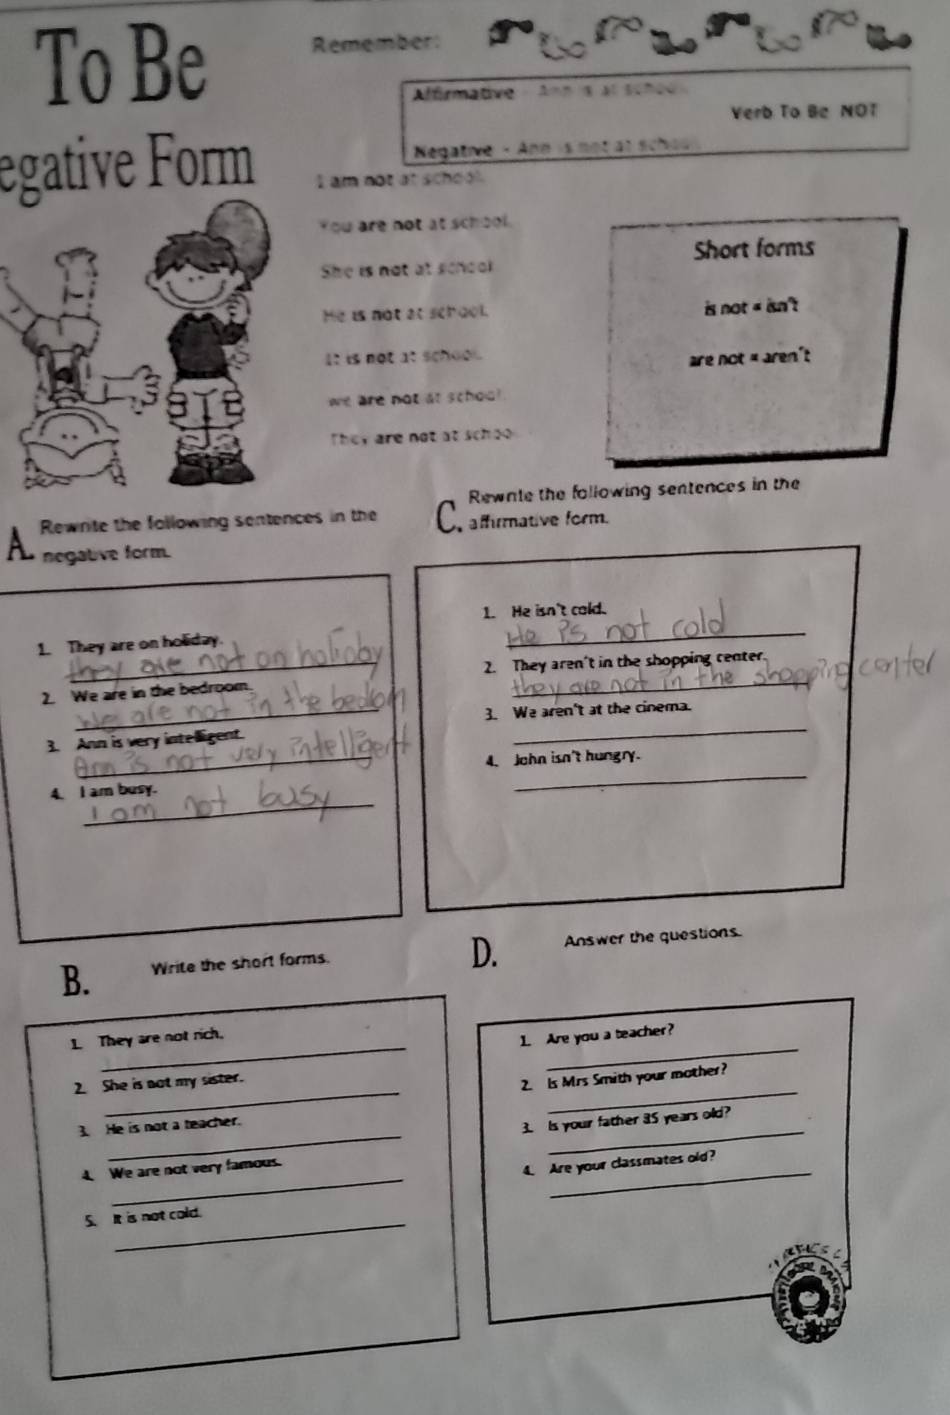 To Be
egative Form
Remember:
Affirmative - Ann is at school.
Verb To Be NOT
Negative - Ann is not at school
I am not at school.
You are not at school.
She is not at school
He is not at school.
It is not at school.
we are not at school
They are not at schoo
Short forms
is not = isn't
are not = aren't
A. Rewrite the following sentences in the
negative form.
1. They are on holiday.
they are not on holiday
2. We are in the bedroom.
We are not in the bedroom
3. Ann is very intelligent.
Ann is not very intelligent
4. I am busy.
I am not busy
C. Rewrite the following sentences in the
affirmative form.
1. He isn't cold.
He is not cold
2. They aren't in the shopping center.
they are not in the shopping center
3. We aren't at the cinema.
4. John isn't hungry.
B. Write the short forms.
1. They are not rich.
2. She is not my sister.
3. He is not a teacher.
4. We are not very famous.
5. It is not cold.
D. Answer the questions.
1. Are you a teacher?
2. Is Mrs Smith your mother?
3. Is your father 35 years old?
4. Are your classmates old?